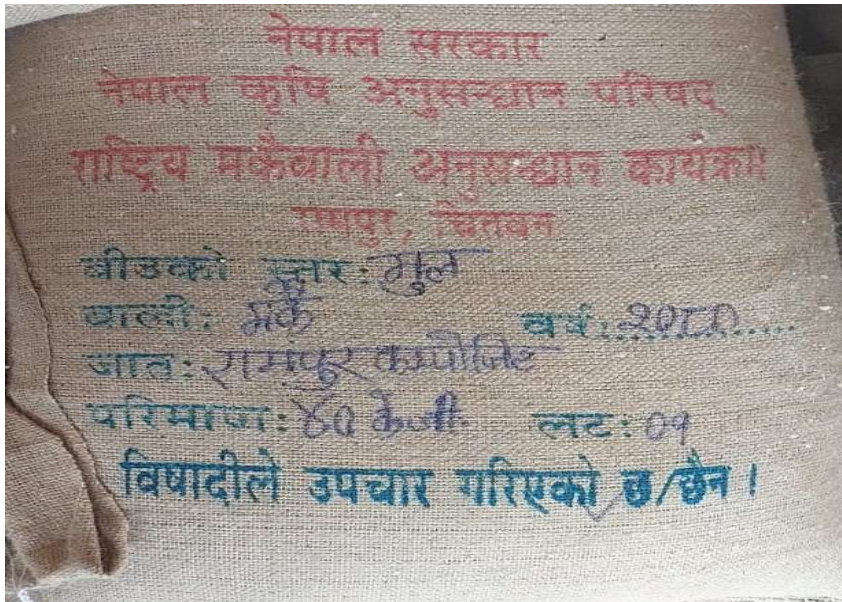 नेपाल सरकार
नेपाल कृषि अनुसन्धान परिषद्
राष्ट्रिय मकैबाली अनुसन्धान कार्यक्रम
रामपुर, चितवन
बीउको स्तर: मुल
बाली: मकै वर्ष: २०८०
जात: रामपुर कम्पोजिट
परिमाण: ४० केजी लट: ०१
विषादीले उपचार गरिएको छ/छैन ।